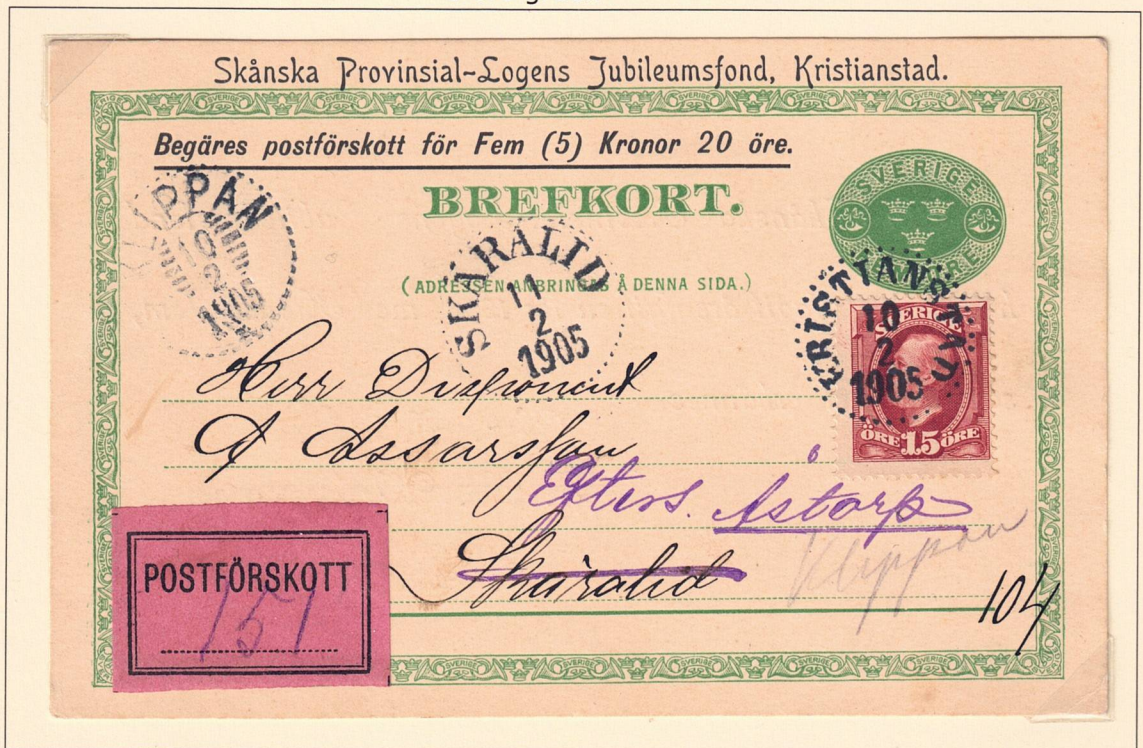 Skånska Provinsial-Logens Jubileumsfond, Kristianstad.
Begäres postförskott för Fem (5) Kronor 20 öre.
BREFKORT.
(ADRESSEN ANBRINGAS Å DENNA SIDA.)
SVERIGE
10
2
1905
SKÄRALID
11
2
1905
KRISTIANSTAD
10
2
1905
SVERIGE
ÖRE 15 ÖRE
Herr Disponent
A Assarsson
Efters. Åstorp
Skäralid
Klippan
104
POSTFÖRSKOTT
151